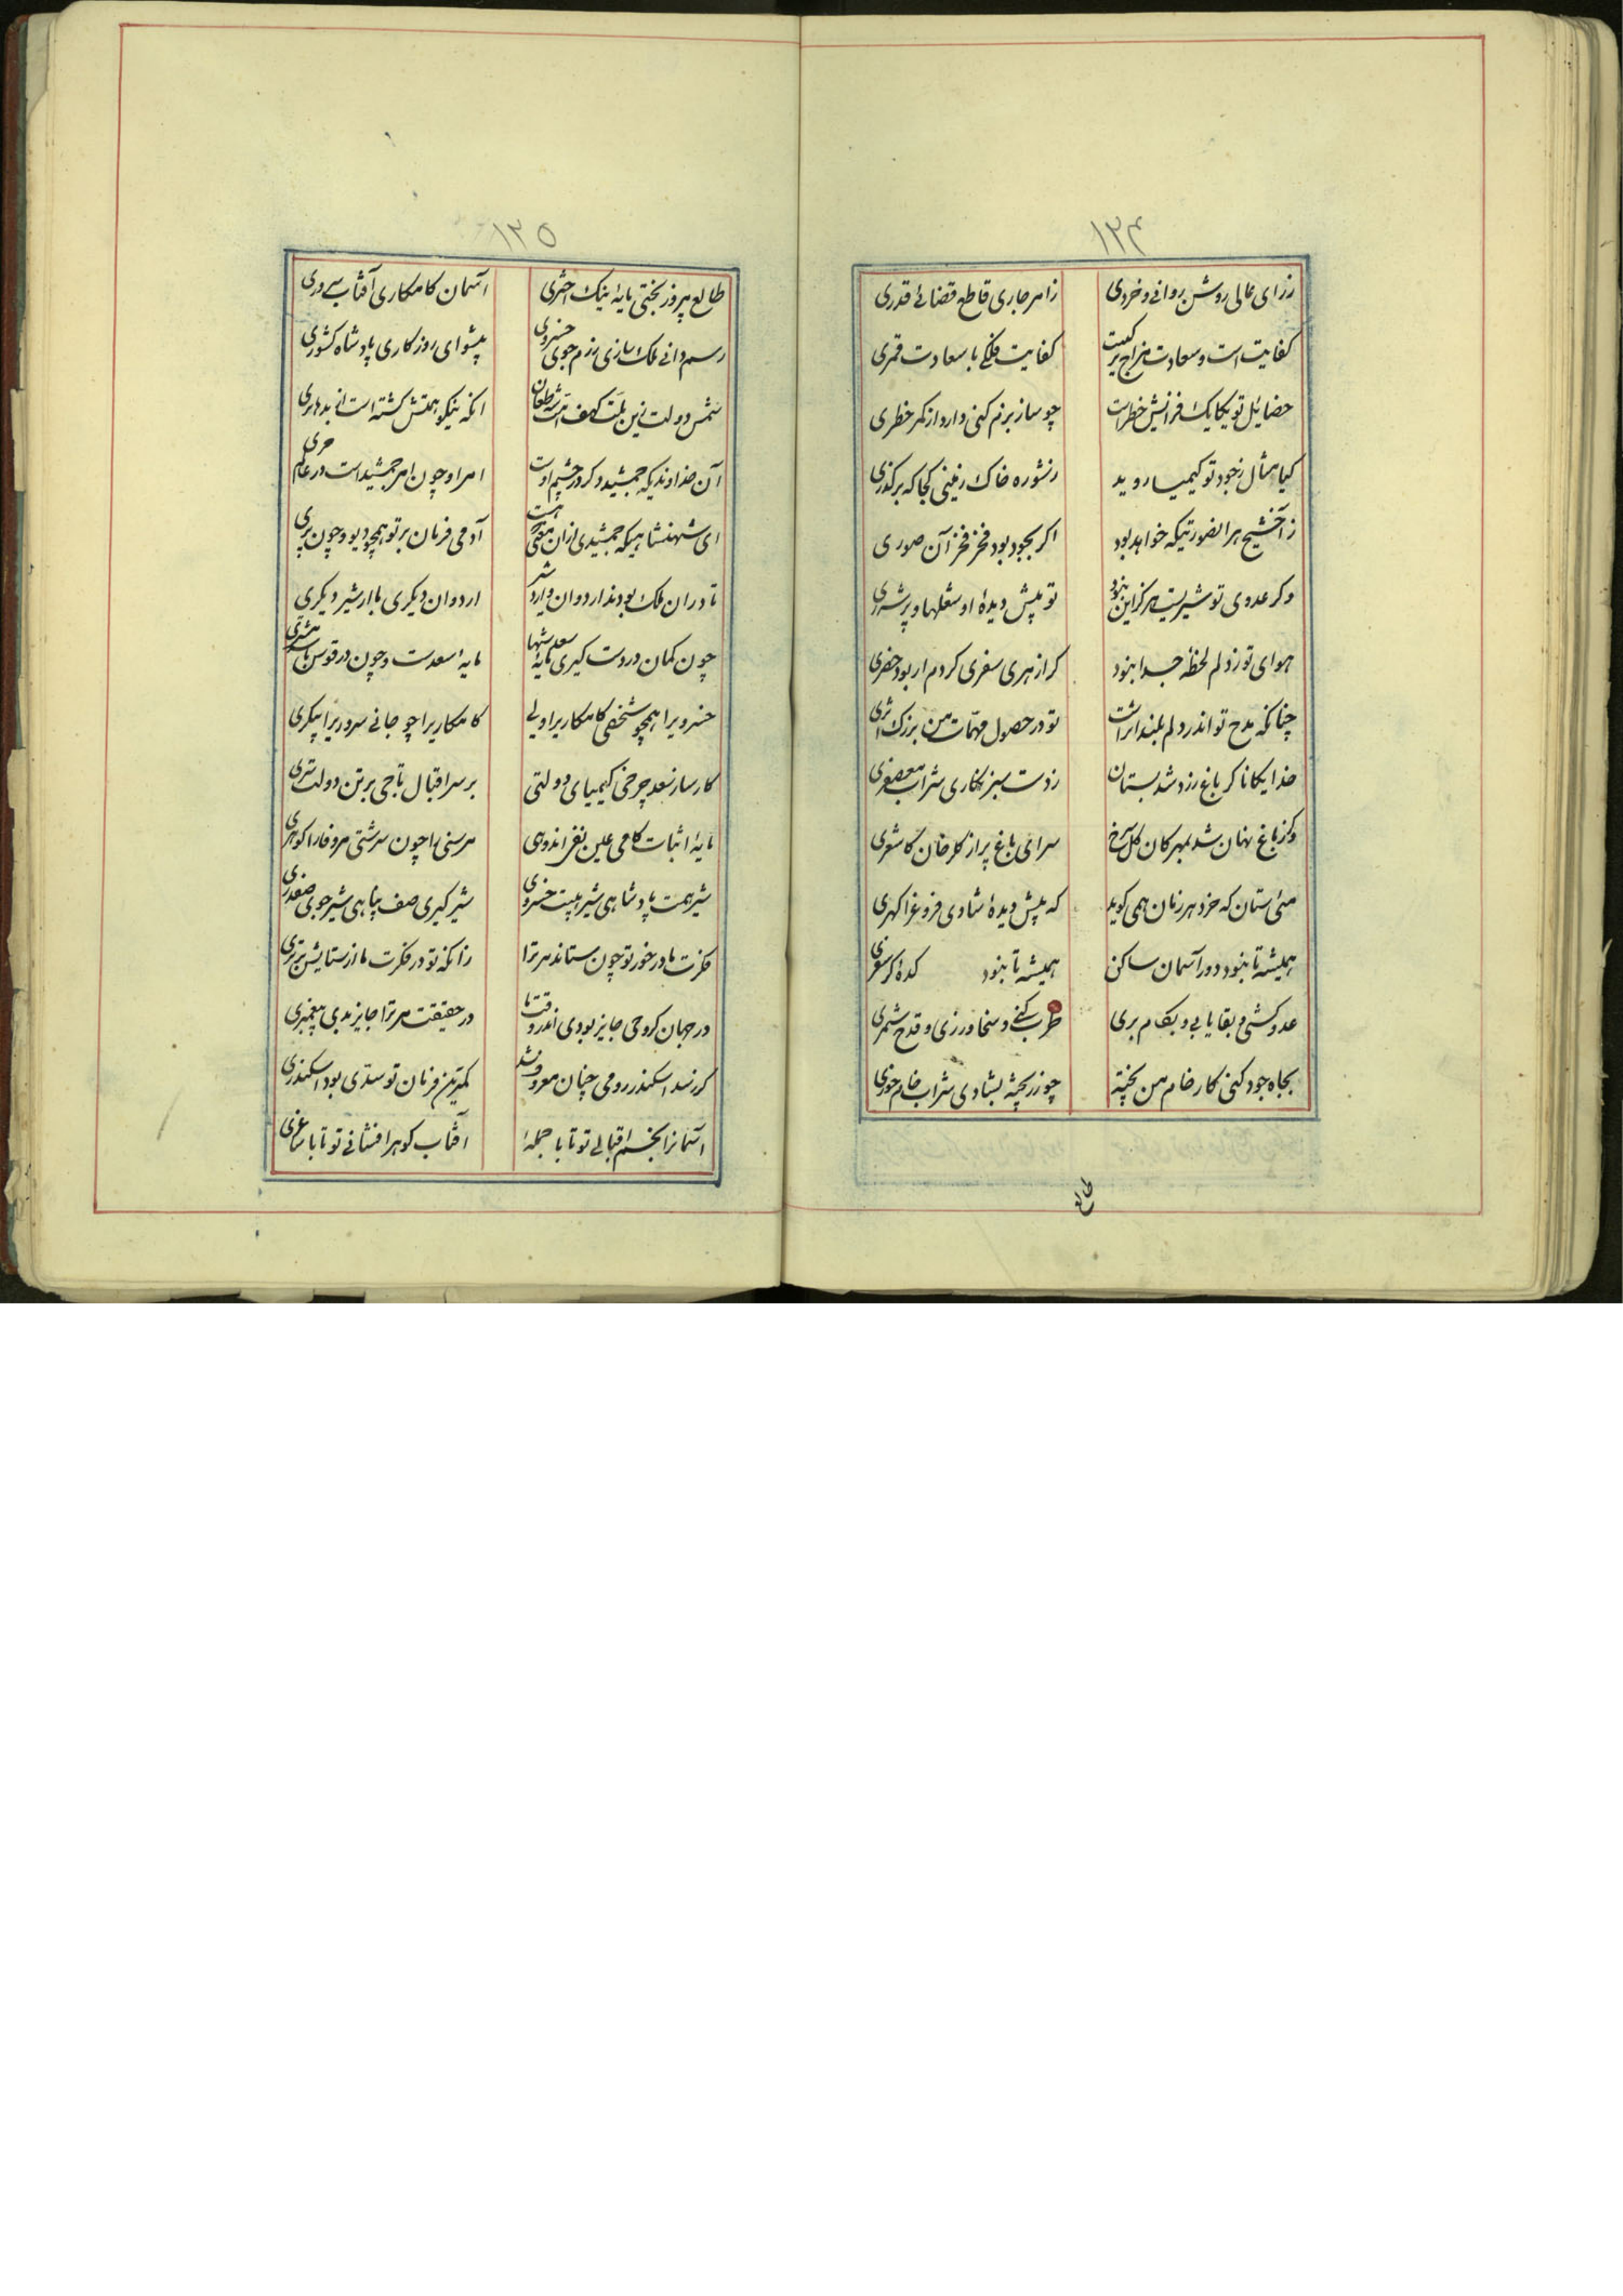 ۱۲۴
ز رای عالی روشن روانی و خردی ز امر جاری قاطع قضائی قدری
کفایت است و سعادت مزاج پر کفایت فلکی با سعادت قمری
خصایل تو یکایک فرانیش خطرات چو ساز بزم کنی دارد از کمر خطری
کیا مثال ز جود تو کیمیا روید ز شوره خاک زمینی کجا که برگذری
ز آخشیج هر انصورتیکه خواهد بود اگر بجود بود فخر فخر آن صوری
وگر عدوی تو شیریست هرگز این نبود تو پیش دیده او شعلها و پر شرری
هوای تو ز دلم لحظه جدا نبود گر از هری سفری کردم ار بود حضری
چنانکه مدح تو اندر دلم بلند اثر است تو در حصول مهمات من بزرک اثری
خدایکانا گر باغ زرد شد بستان ز دست سبز نگاری شراب معصفری
وگر ز باغ نهان شد بمهرکان گل سرخ سرای باغ پر از گلرخان کاشغری
می ستان که خرد هر زمان همی گوید که پیش دیده شادی فروغ را گهری
همیشه تا نبود دور آسمان ساکن همیشه تا نبود کده گر سفری
عدو کشی و بقا یابی و بکام بری طرب کنی و سخا ورزی و قدح شمری
بجاه جود کنی کار خام من پخته چو زر پخته بشادی شراب خام خوری
طالع
۱۲۵
طالع پیروز بختی مایه نیک اختری آسمان کامکاری آفتاب سروری
رسم دانی ملک سازی رزم جوی خسروی پیشوای روزگاری پادشاه کشوری
شمس دولت زین ملت کهف امت شه طغان انکه نیکو همتش گشته است از بدها بری
آن خداوندیکه جمشید دگر در چشم اوست امر او چون امر جمشید است در عالم جری
ای شهنشاهیکه جمشیدی ازان معنی که هست آدمی فرمان بر تو همچو دیو و چون پری
تا در ان ملک بودند اردوان و اردشیر اردوان دیگری یا اردشیر دیگری
چون کمان در دست گیری مایه سعد شها مایه سعدست و چون در قوس باشد مشتری
خسرویرا همچو شخصی کامکاریرا ولی کامکاریرا چو جانی سروریرا پیکری
کارساز سعد چرخی کیمیای دولتی بر سر اقبال تاجی بر تن دولت سری
مایه اثبات کامی عین نفی اندوهی مر سخی را چون سرشتی مر وفا را گوهری
شیر همت پادشاهی شیر هیبت خسروی شیر گیری صف پناهی شیر جوی صفدری
فکرت ما در خور تو چون ستاند مر ترا زانکه تو در فکرت ما از ستایش برتری
در جهان گر وحی جایز بودی اندر وقت ما در حقیقت مر ترا جایز بدی پیغمبری
گر ز سد اسکندر رومی چنان معروف شد کمترین فرمان تو سدی بود اسکندری
آسمانرا بختم اقبالی تو تا با حمله آفتاب گوهر افشانی تو تا با ساغری